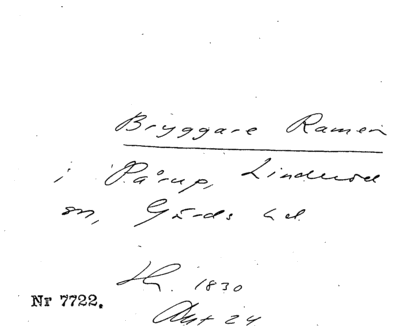 Bryggare Ramen
i Pårup, Linderöd
sn, Gärds hd.
1830
Nr 7722.
24